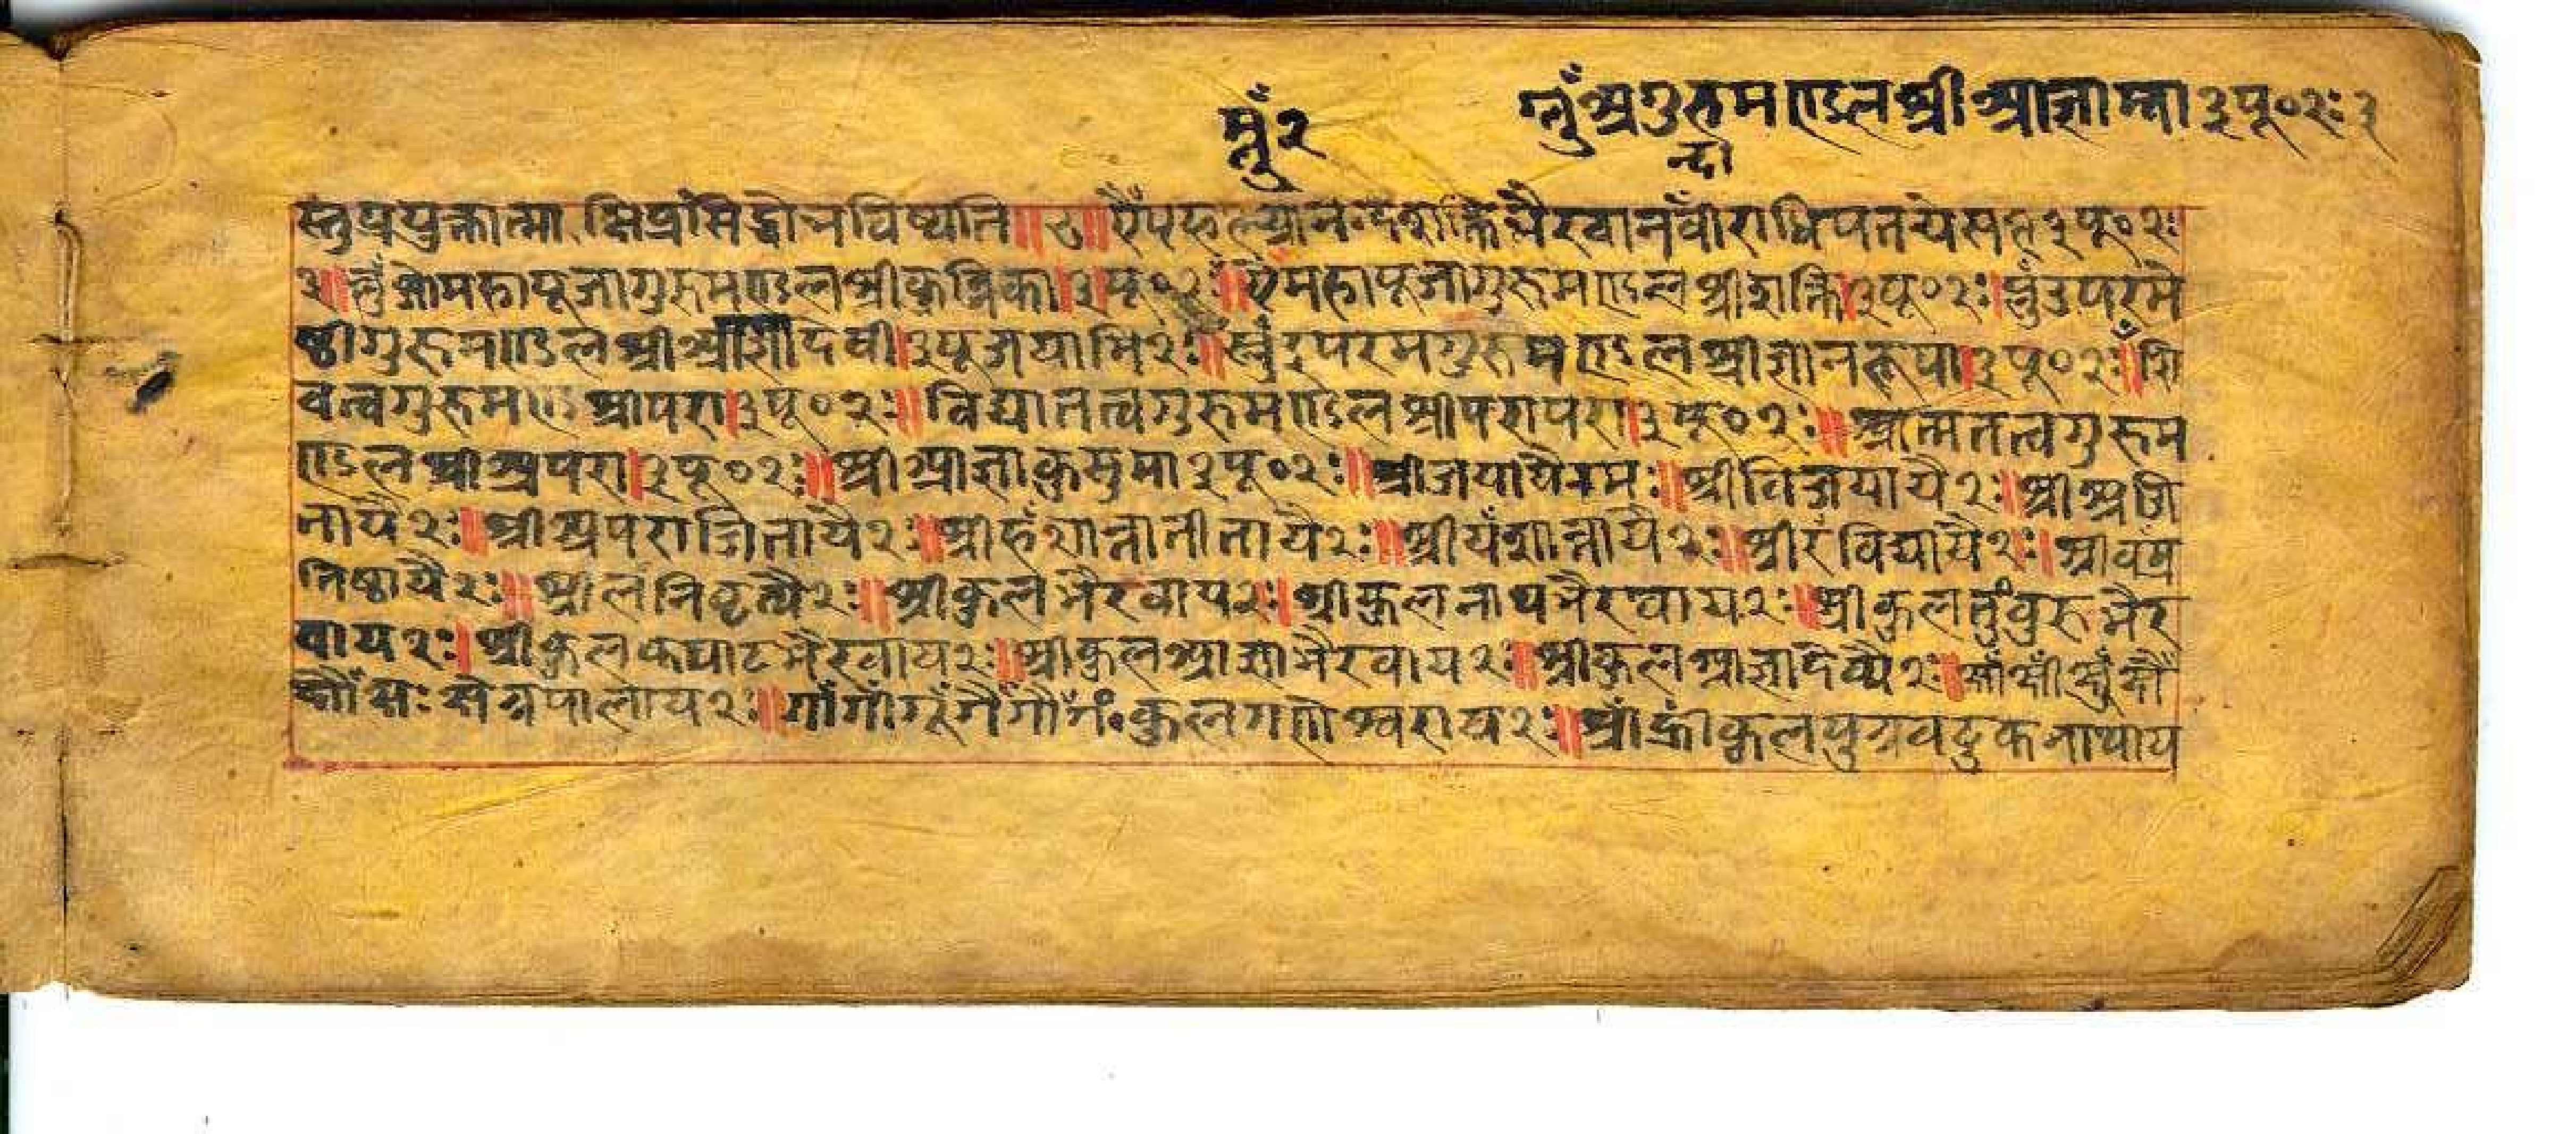 म्लुँ २
म्लुँ अगुरुमण्डल श्री आज्ञाम्बा ३ पू० २ः ३
न्दा
स्तुपयुक्तात्मा क्षिप्रं सिद्धो भविष्यति ॥ ऐँ शक्ति भैरवानन्दवीराधिपतये ३ पू० २ः
३ ॥ महापूजागुरुमण्डलश्रीकुब्जिका । ३ पू० २ः ॥ महापूजागुरुमण्डलश्रीशक्ति । ३ पू० २ः । परमे
ष्ठीगुरुमण्डलश्रीआज्ञादेवी । ३ पूजयामि २ः ॥ परमगुरुमण्डलश्रीज्ञानरूपा । ३ पू० २ः ॥ शि
वत्वगुरुमण्ड श्रीपरा । ३ पू० २ः ॥ विद्यातत्वगुरुमण्डलश्रीपरापरा । ३ पू० २ः ॥ आत्मतत्वगुरुम
ण्डलश्रीअपरा । ३ पू० २ः ॥ श्रीआज्ञाकुसुमा ३ पू० २ः ॥ श्रीजयायै नमः ॥ श्रीविजयायै २ः ॥ श्रीअजि
तायै २ः ॥ श्रीअपराजितायै २ः ॥ श्रीहँशान्तातीतायै २ः ॥ श्रीयँशान्तायै २ः ॥ श्रीरँविद्यायै २ः ॥ श्रीवँप्र
तिष्ठायै २ः ॥ श्रीलँनिवृत्यै २ः ॥ श्रीकुलभैरवाय २ः ॥ श्रीकुलनाथभैरवाय २ः ॥ श्रीकुलतुंवुरुभैर
वाय २ः । श्रीकुलकपाटभैरवाय २ः ॥ श्रीकुलआज्ञाभैरवाय २ः ॥ श्रीकुलआज्ञादेव्यै २ः ॥ क्षाँ क्षीँ क्षुँ क्षैँ
क्षौँ क्षः क्षेत्रपालाय २ः ॥ गाँ गीँ गूँ गैँ गौँ गँः कुलगणेश्वराय २ः ॥ श्राँ ह्रीँ कुलपुत्रवटुकनाथाय